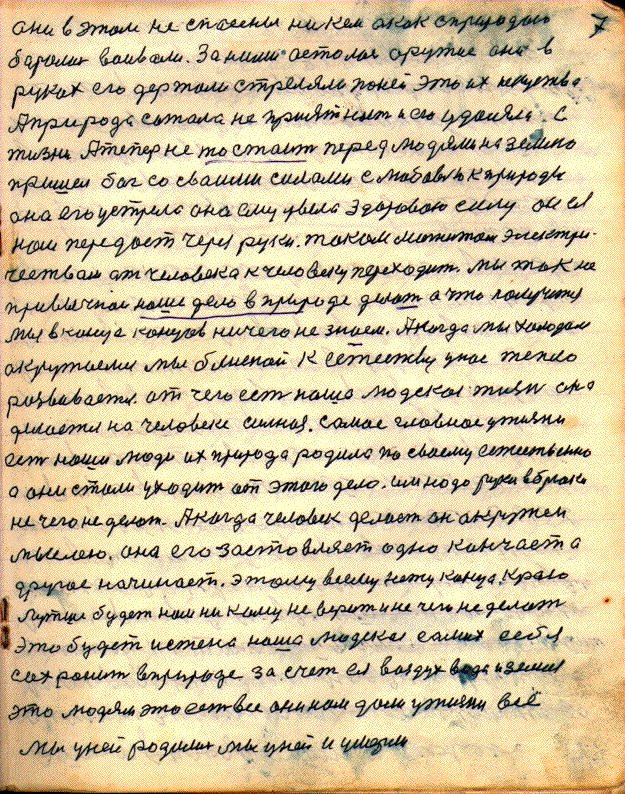 7
они в этом не спасены ни кем а как с природою
боролись воевали. За ними осталось оружие оно в
руках его держали стреляли по ней это их искуства
А природа сотала не приятности его удоняла с
жизни А тепер не то стаит перед людями на землю
пришел бог со сваими силами с любовью к природы
она его устрела она ему увела здоровою силу он ея
нам передает через руки. таком
чествам от человека к человеку переходит. мы так не
привычнои наше дело в природе делат а что получится
мы в конца концов ничего не знаем. А когда мы холодам
акружаемы мы близкой к естеству унас тепло
развивается. от чего ест наша людская жизн она
делается на человеке силная. самае главное ужизни
ест наши люди их природа родила по своему естественно
а они стали уходит от этого дело. им надо руки в брюки
не чего не делат. А когда человек делает он акружен
мыслею, она его заставляет одно канчаета
другое начинает. этому всему нету конца. Краю
Лутше будет нам ни кому не верит и не чего не делат
это будет истена наша людская самих себя
сахранит в природе за счет ея воздух вода и земля
это людям это ест все они нам дали ужизни всё
мы у ней родилис мы у ней и умрем